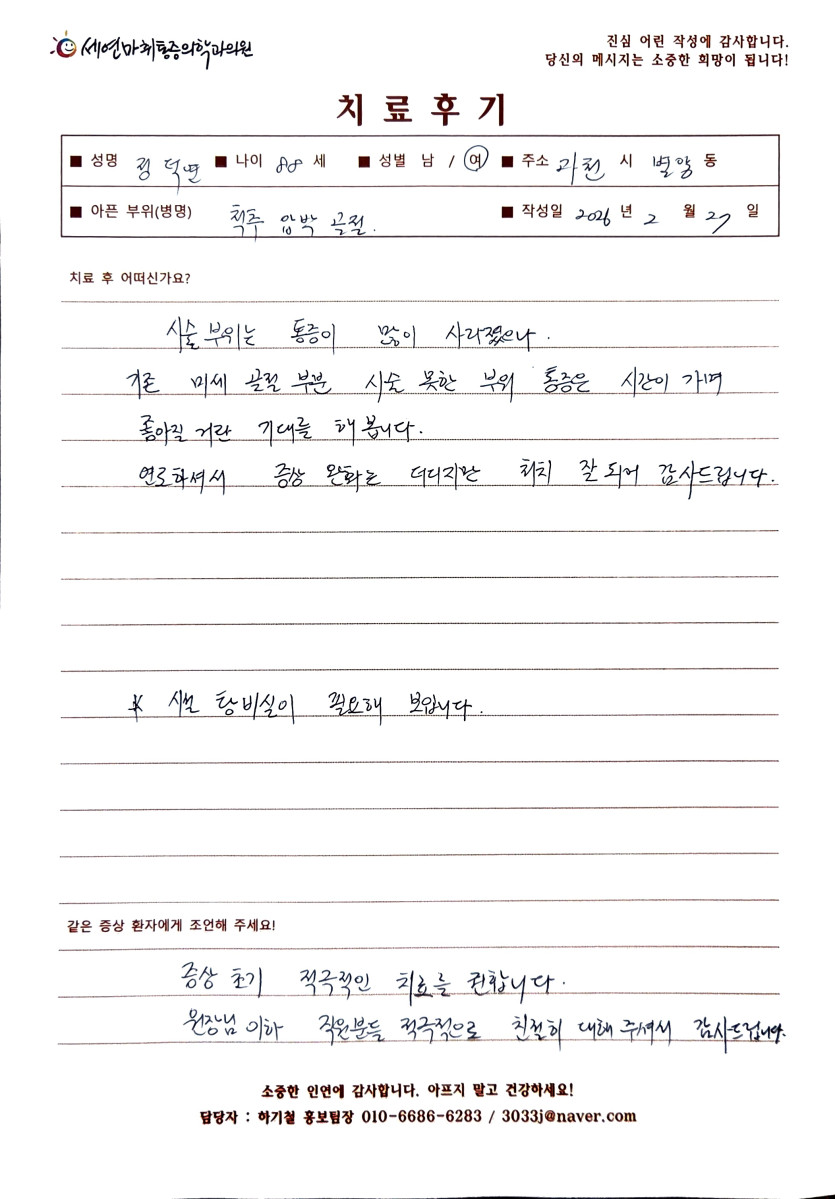 세연마취통증의학과의원
진심 어린 작성에 감사합니다.
당신의 메시지는 소중한 희망이 됩니다!
치료후기
■ 성명 정덕면 ■ 나이 88 세 ■ 성별 남 / 여 ■ 주소 과천 시 별양 동
■ 아픈 부위(병명) 척추 압박 골절. ■ 작성일 2026 년 2 월 27 일
치료 후 어떠신가요?
시술 부위는 통증이 많이 사라졌으나.
기존 미세 골절 부분 시술 못한 부위 통증은 시간이 가며
좋아질 거란 기대를 해 봅니다.
연로하셔서 증상 완화는 더디지만 처치 잘 되어 감사드립니다.
* 탕비실이 필요해 보입니다.
같은 증상 환자에게 조언해 주세요!
증상 초기 적극적인 치료를 권합니다.
원장님 이하 직원분들 적극적으로 친절히 대해 주셔서 감사드립니다.
소중한 인연에 감사합니다. 아프지 말고 건강하세요!
담당자 : 하기철 홍보팀장 010-6686-6283 / 3033j@naver.com